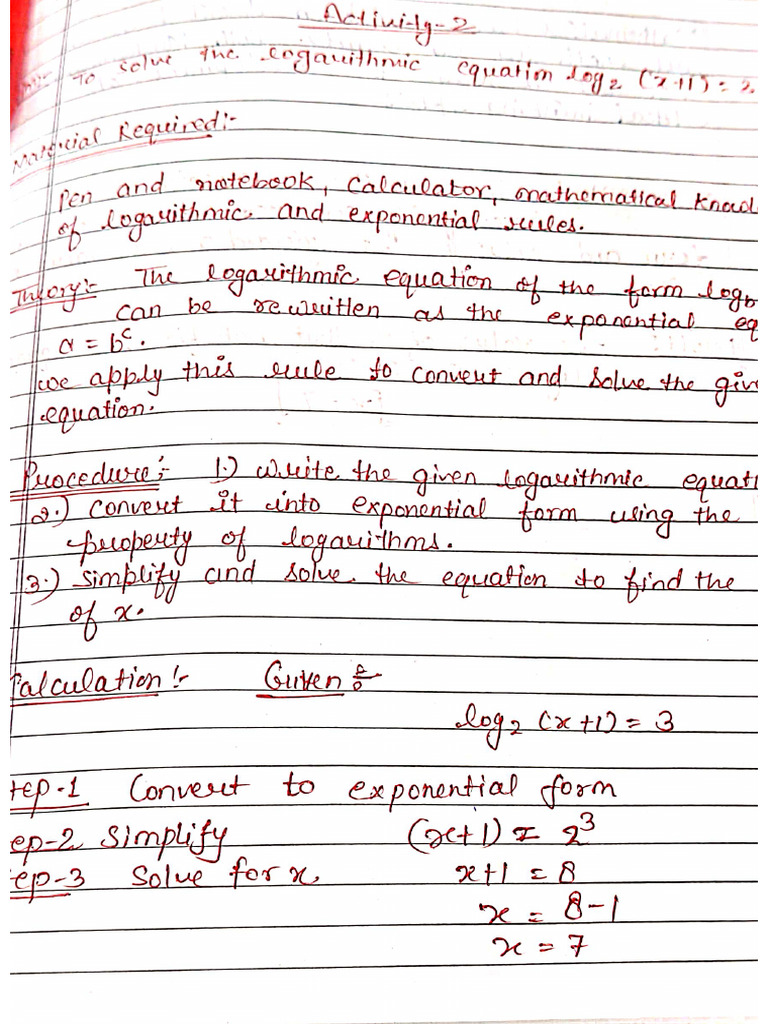 Activity-2
To solve the logarithmic equation log₂ (x+1) = 
Material Required:-
Pen and notebook, Calculator, mathematical
of logarithmic and exponential rules.
Theory:- The logarithmic equation of the form log
can be rewritten as the exponential
a = bᶜ.
we apply this rule to convert and solve the
equation.
Procedure:- 1.) Write the given logarithmic
2.) Convert it into exponential form using the
property of logarithms.
3.) Simplify and solve the equation to find the
of x.
Calculation:- Given:-
log₂ (x+1) = 3
tep-1 Convert to exponential form
ep-2 Simplify (x+1) = 2³
ep-3 Solve for x. x+1 = 8
x = 8-1
x = 7